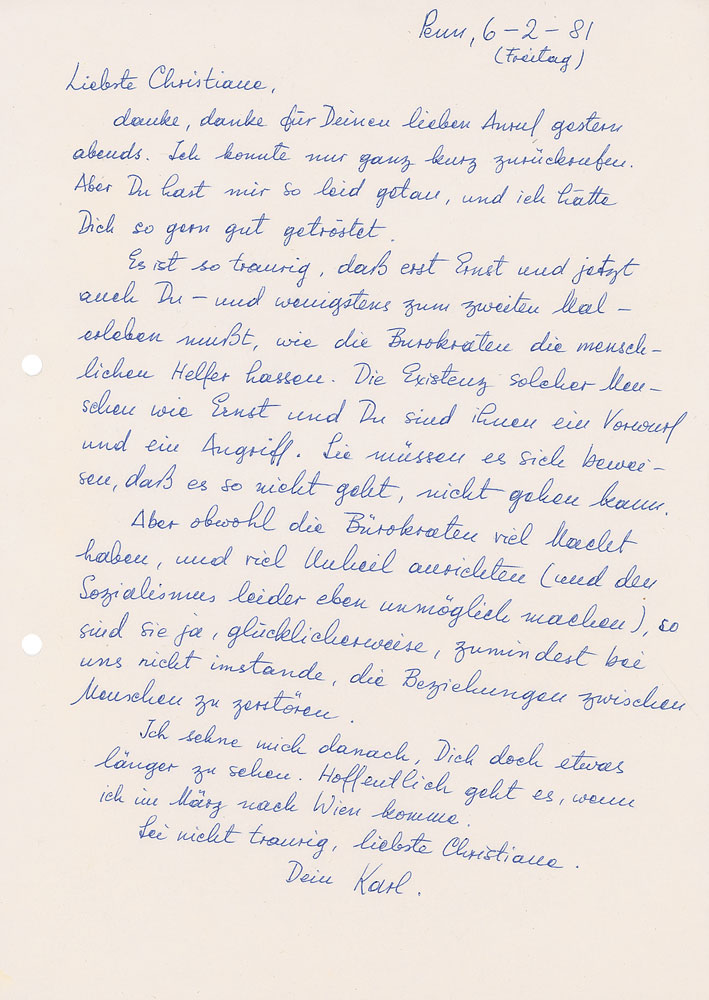 Penn, 6-2-81
(Freitag)
Liebste Christiane,
danke, danke für Deinen lieben Anruf gestern
abends. Ich konnte nur ganz kurz zurückrufen.
Aber Du hast mir so leid getan, und ich hätte
Dich so gern gut getröstet.
Es ist so traurig, daß erst Ernst und jetzt
auch Du – und wenigstens zum zweiten Mal –
erleben mußt, wie die Bürokraten die mensch-
lichen Helfer hassen. Die Existenz solcher Men-
schen wie Ernst und Du sind ihnen ein Vorwurf
und ein Angriff. Sie müssen es sich bewei-
sen, daß es so nicht geht, nicht gehen kann.
Aber obwohl die Bürokraten viel Macht
haben, und viel Unheil anrichten (und den
Sozialismus leider eben unmöglich machen), so
sind sie ja, glücklicherweise, zumindest bei
uns nicht imstande, die Beziehungen zwischen
Menschen zu zerstören.
Ich sehne mich danach, Dich doch etwas
länger zu sehen. Hoffentlich geht es, wenn
ich im März nach Wien komme.
Sei nicht traurig, liebste Christiane.
Dein Karl.